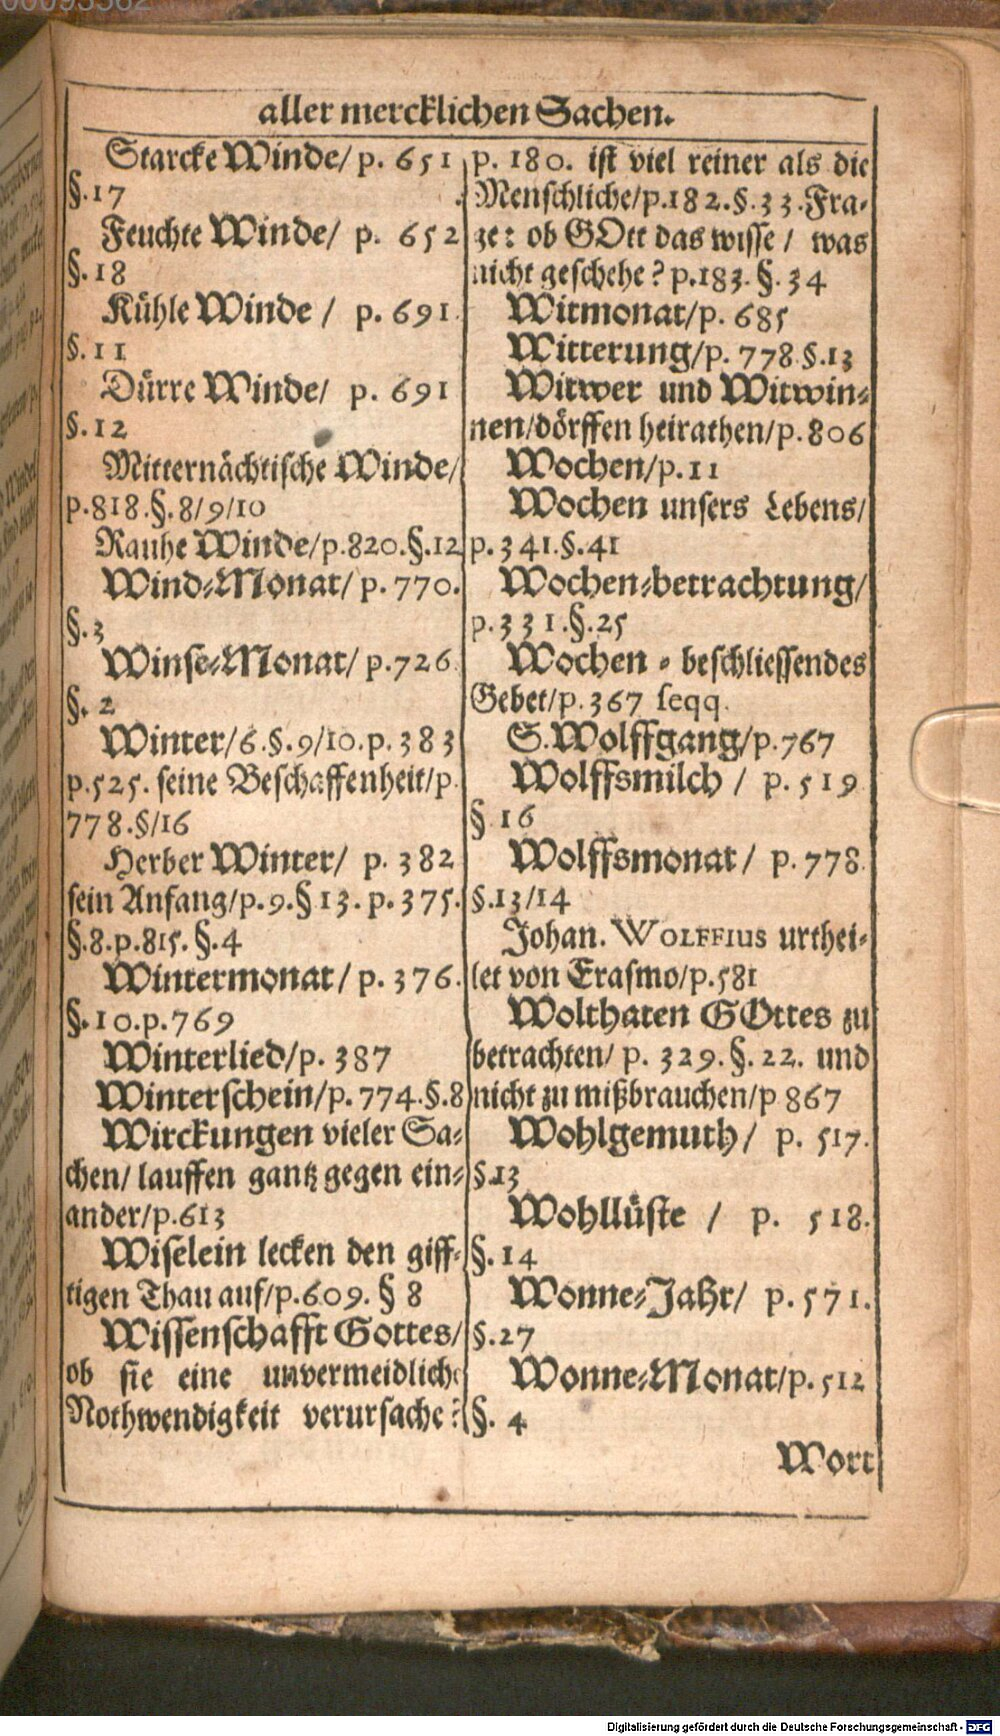 aller mercklichen Sachen.
Starcke Winde/ p. 651
§.17
Feuchte Winde/ p. 652
§.18
Kühle Winde / p. 691.
§.11
Dürre Winde/ p. 691
§.12
Mitternächtische Winde/
p.818.§.8/9/10
Rauhe Winde/p.820.§.12
Wind-Monat/ p. 770.
§.3
Winse-Monat/ p.726.
§. 2
Winter/6.§.9/10.p.383
p.525. seine Beschaffenheit/p.
778.§/16
Herber Winter/ p. 382
sein Anfang/p.9.§ 13. p.375.
§.8.p.815. §.4
Wintermonat/ p. 376.
§.10.p.769
Winterlied/p. 387
Winterschein/p.774.§.8
Wirckungen vieler Sa-
chen/ lauffen gantz gegen ein-
ander/p.613
Wiselein lecken den giff-
tigen Thau auf/p.609. § 8
Wissenschafft Gottes/
ob sie eine unvermeidliche
Nothwendigkeit verursache?
p. 180. ist viel reiner als die
Menschliche/p.182.§.33.Fra-
ge: ob GOtt das wisse / was
nicht geschehe? p.183. §. 34
Witmonat/p. 685
Witterung/p. 778.§.13
Witwer und Witwin-
nen/dörffen heirathen/p.806
Wochen/p.11
Wochen unsers Lebens/
p.341.§.41
Wochen-betrachtung/
p.331.§.25
Wochen - beschliessendes
Gebet/p.367 seqq.
S.Wolffgang/p.767
Wolffsmilch / p. 519
§ 16
Wolffsmonat / p.778.
§.13/14
Johan. WOLFFIUS urthei-
let von Erasmo/p.581
Wolthaten GOttes zu
betrachten/ p. 329.§. 22. und
nicht zu mißbrauchen/p 867
Wohlgemuth/ p. 517.
§.13
Wohllüste / p. 518.
§.14
Wonne-Jahr/ p.571.
§.27
Wonne-Monat/p.512
§. 4
Wort
Digitalisierung gefördert durch die Deutsche Forschungsgemeinschaft - DFG